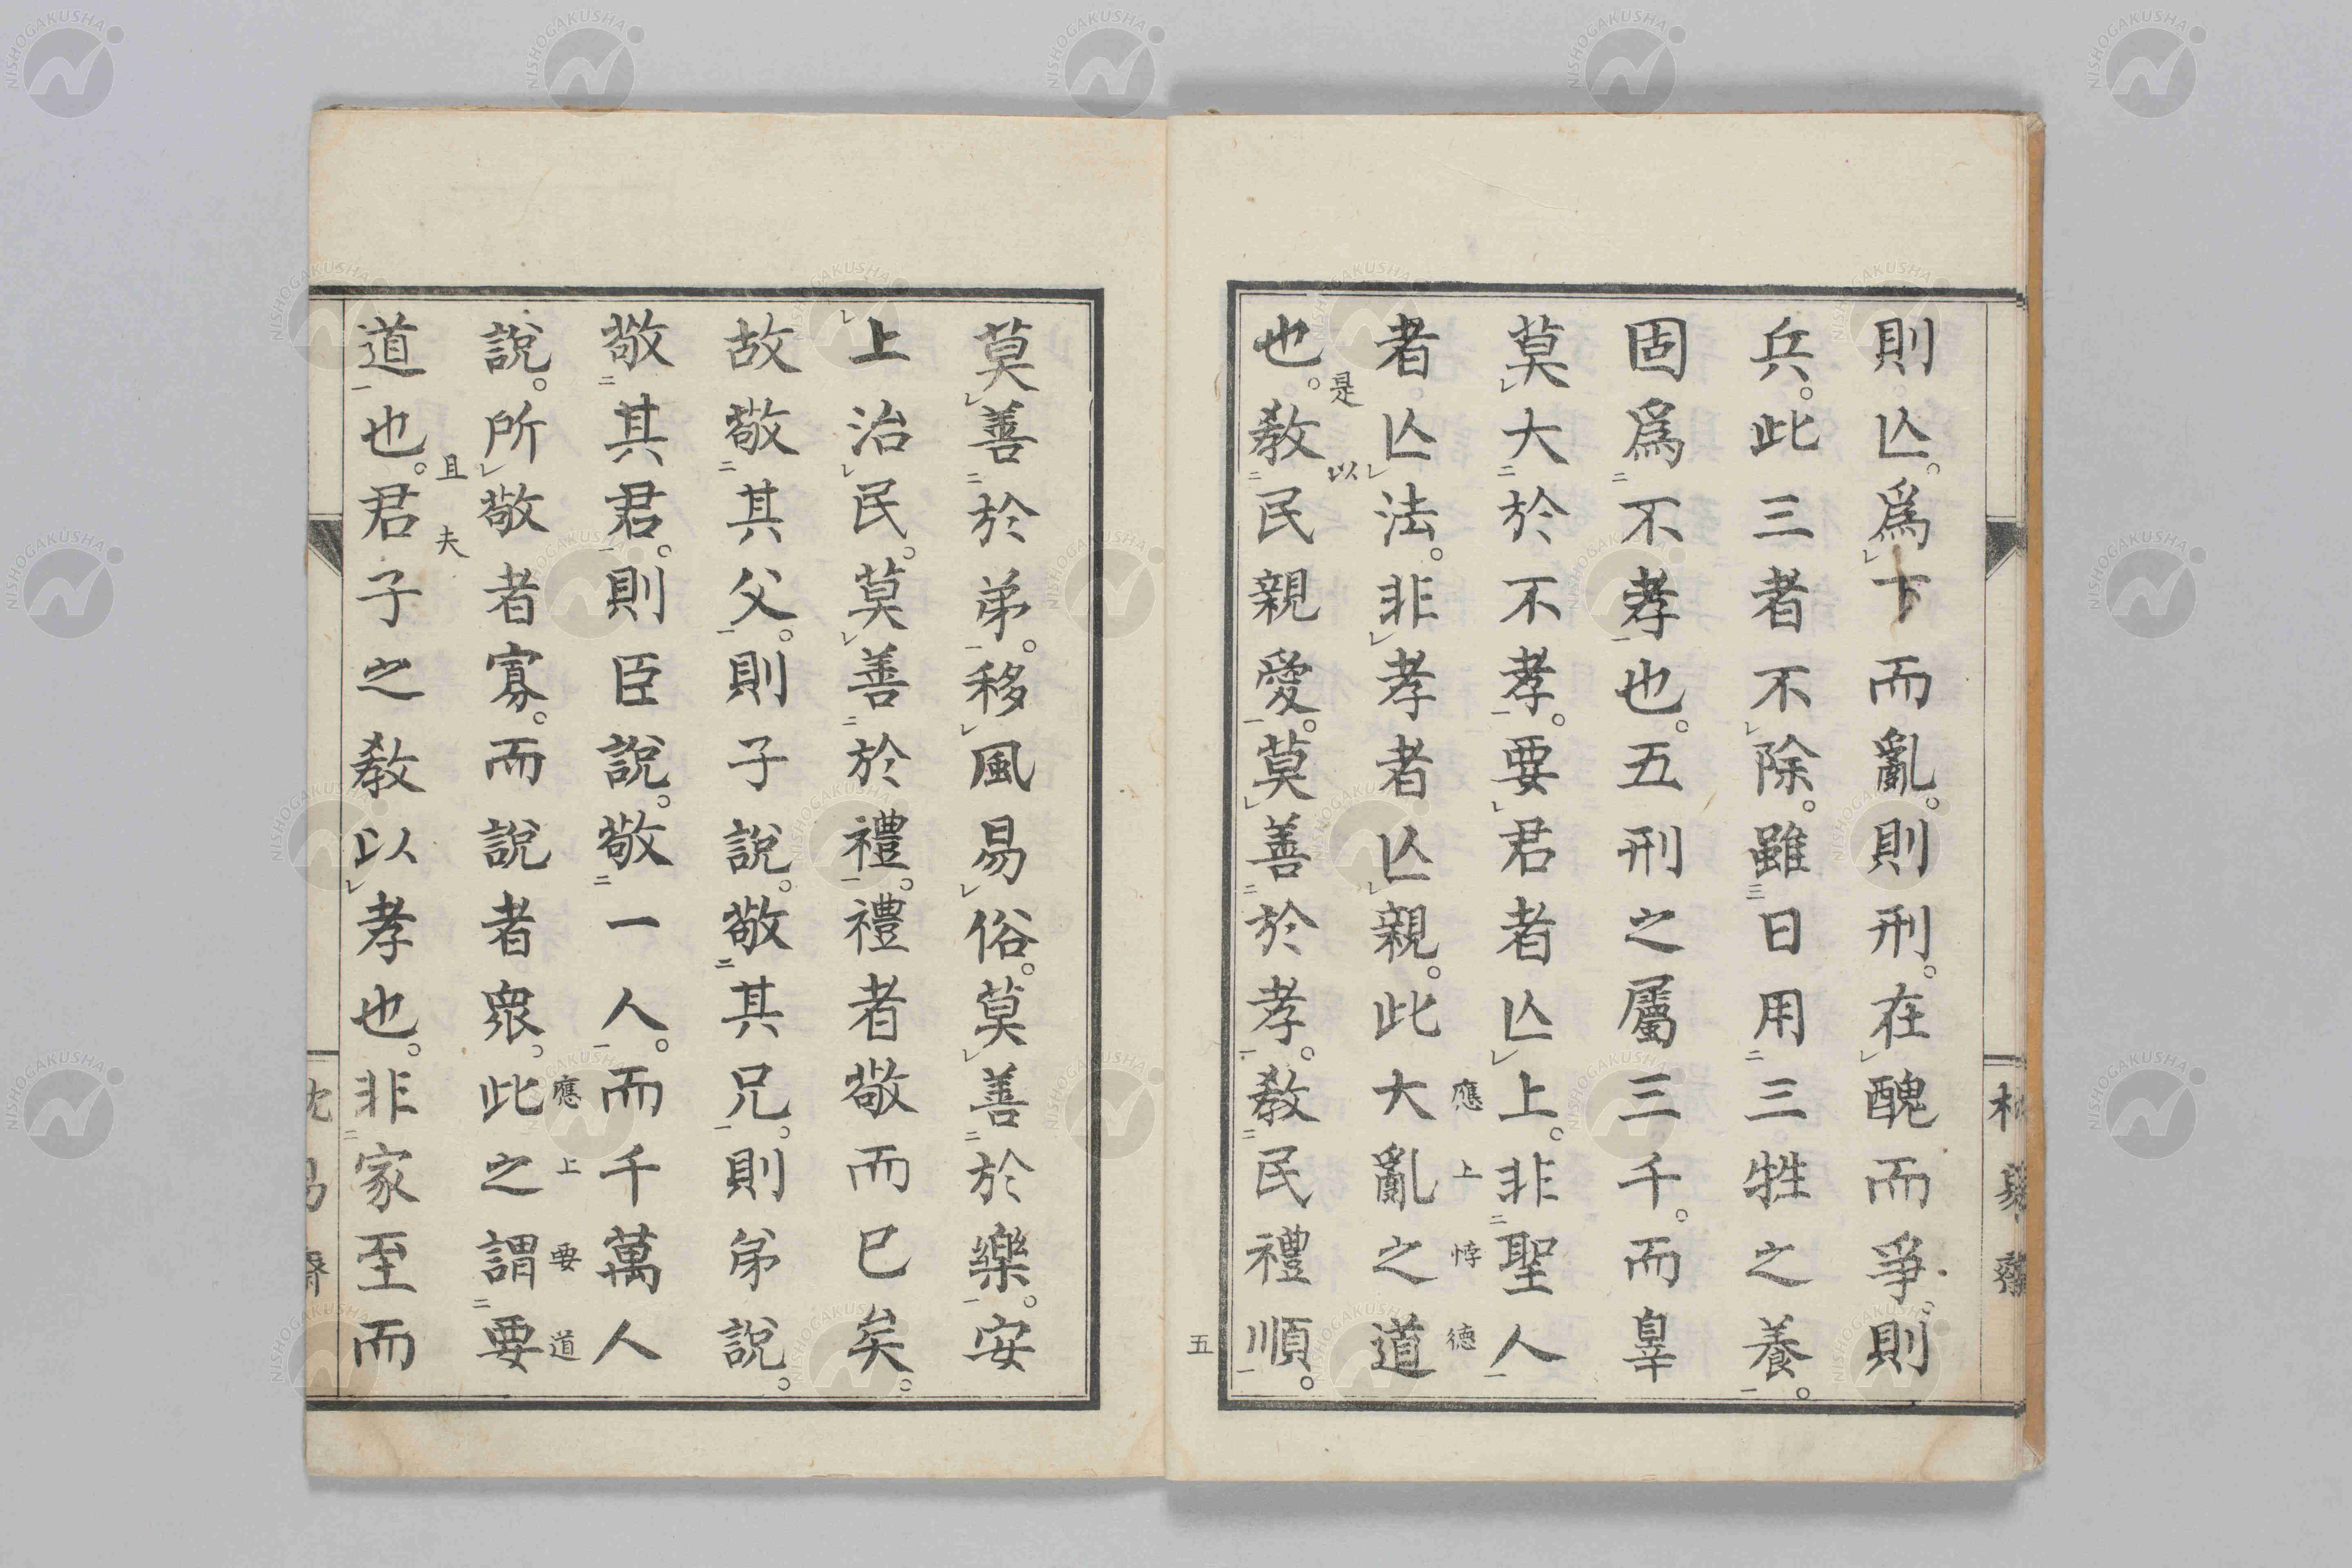 則亾。爲下而亂。則刑。在醜而爭。則
兵。此三者不除。雖日用三牲之養。
固爲不孝也。五刑之屬三千。而辠
莫大於不孝。要君者亾上。非聖人
者亾法。非孝者亾親。此大亂之道
應上悖德
也。敎民親愛。莫善於孝。敎民禮順。
是以
五
莫善於弟。移風易俗。莫善於樂。安
上治民。莫善於禮。禮者敬而已矣。
故敬其父。則子說。敬其兄。則弟說。
敬其君。則臣說。敬一人。而千萬人
說。所敬者寡。而說者衆。此之謂要
應上要道
道也。君子之敎以孝也。非家至而
且夫
NISHOGAKUSHA